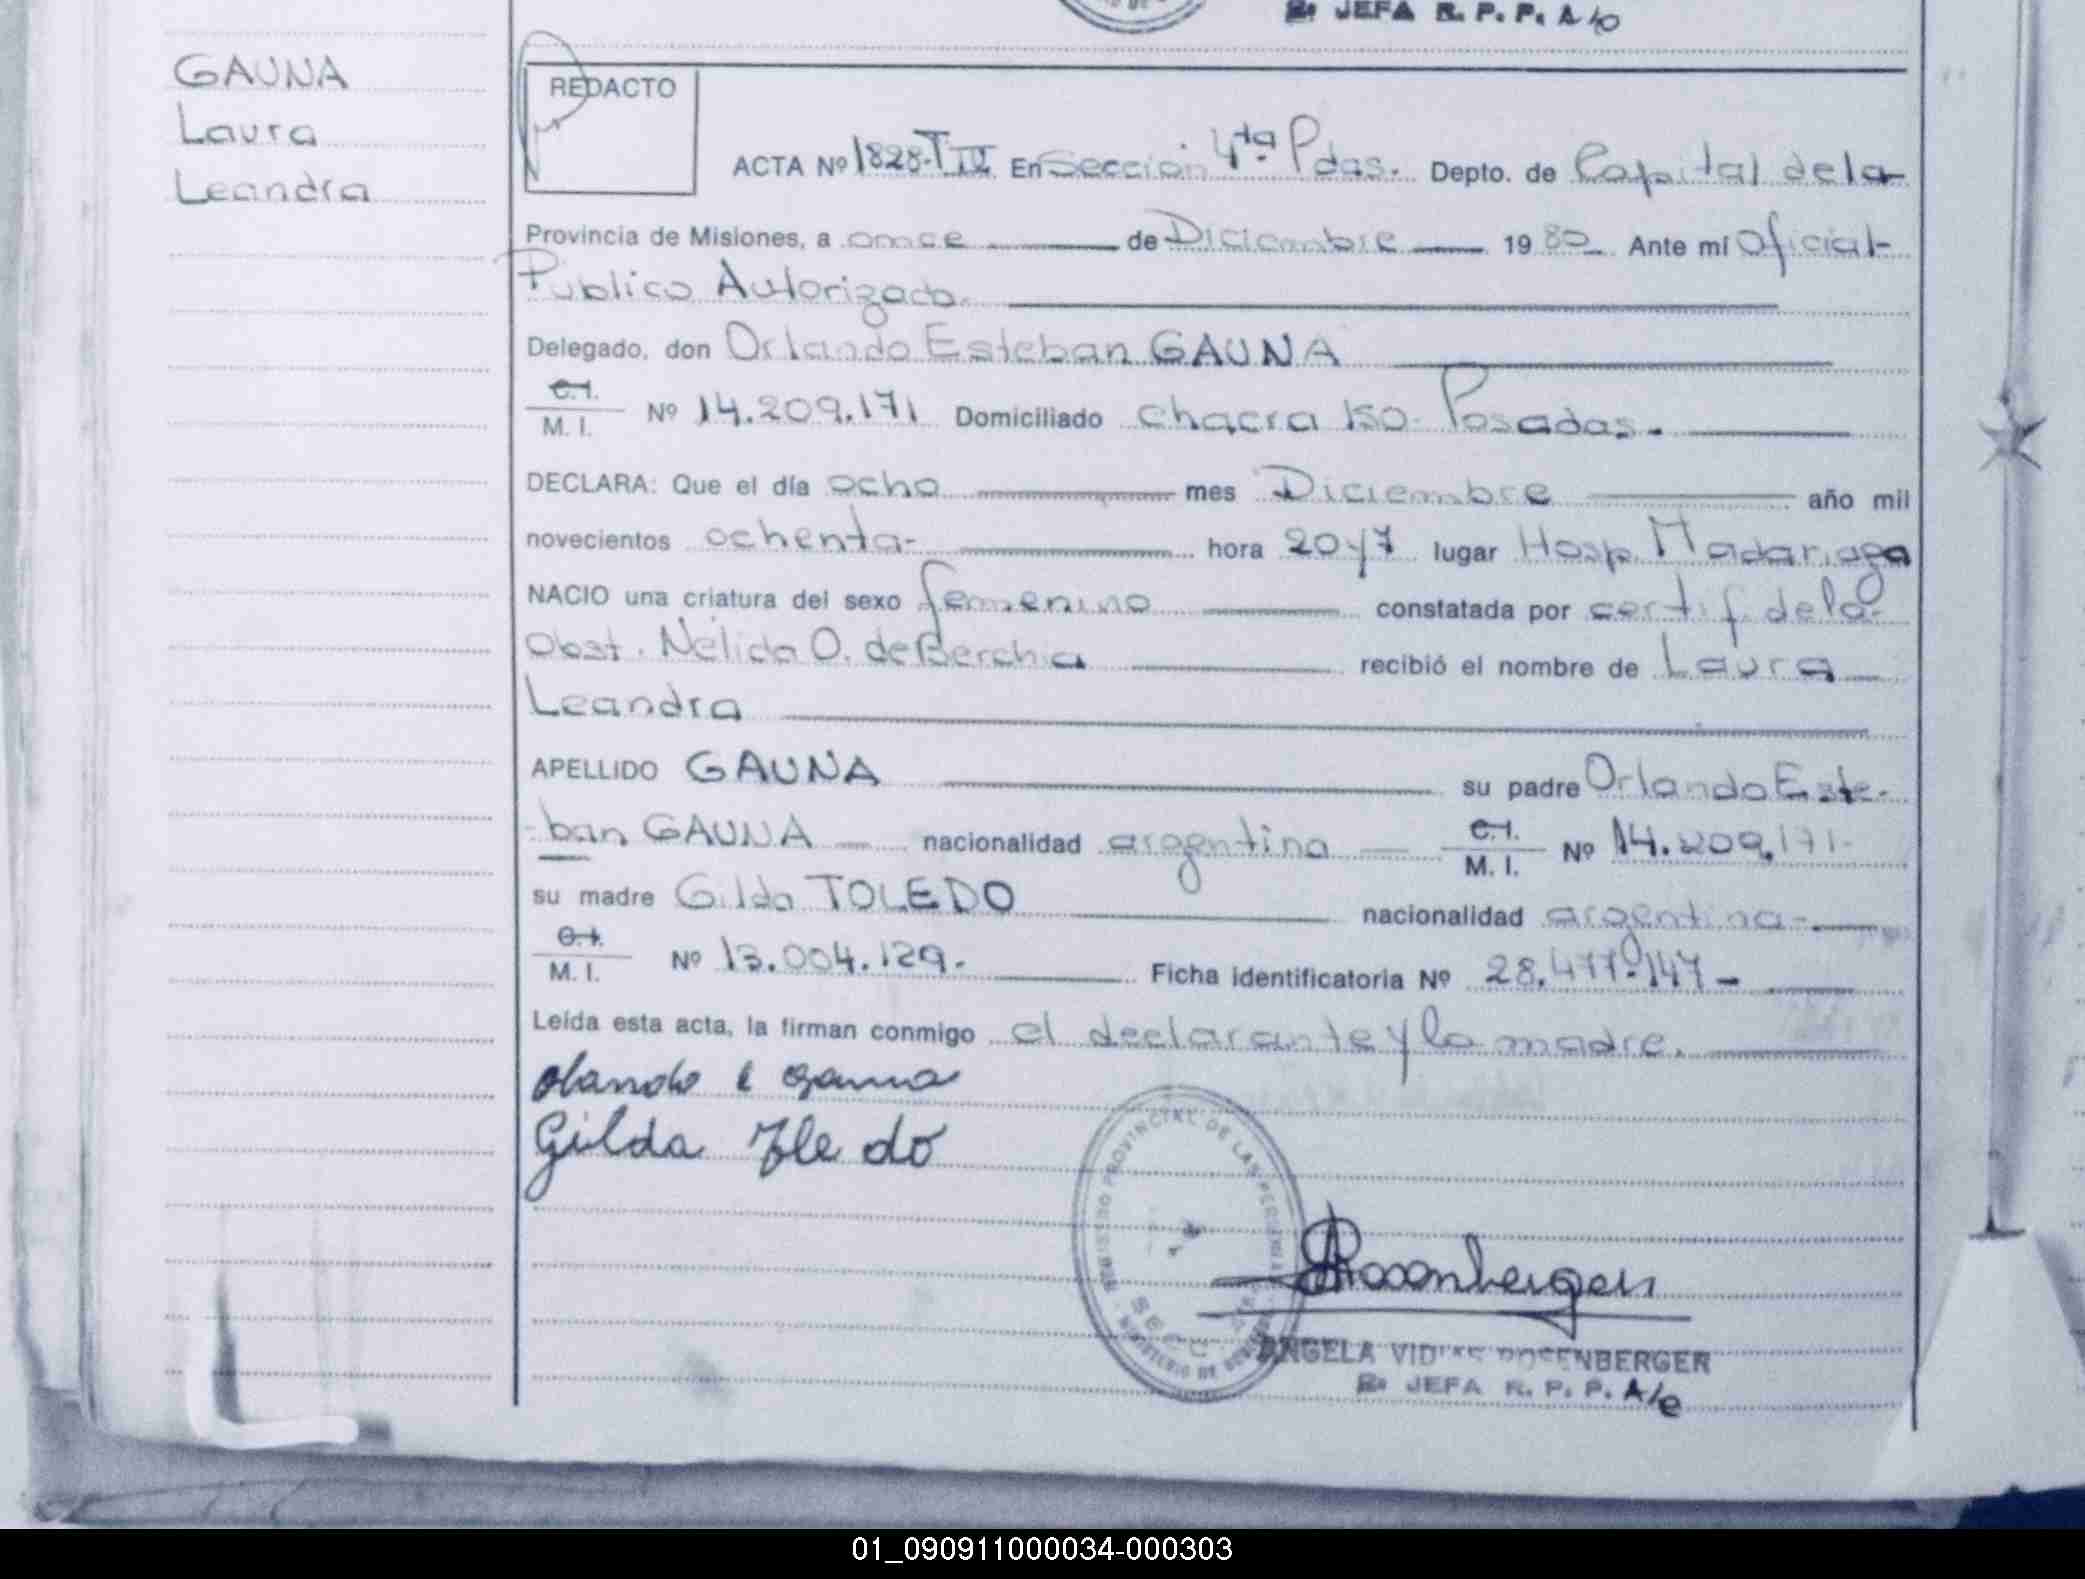 2º JEFA R. P. P. A/c
GAUNA
Laura
Leandra
REDACTO
ACTA Nº 1828-T IV En Sección 4ta Pdas. Depto. de Capital de la
Provincia de Misiones, a once de Diciembre 1980 Ante mí Oficial
Público Autorizado.
Delegado, don Orlando Esteban GAUNA
C.I.
M. I. Nº 14.209.171 Domiciliado Chacra 150. Posadas.
DECLARA: Que el día ocho mes Diciembre año mil
novecientos ochenta- hora 20 y 7 lugar Hosp. Madariaga
NACIO una criatura del sexo femenino constatada por certif. de la
Obst. Nélida O. de Berchia recibió el nombre de Laura
Leandra
APELLIDO GAUNA su padre Orlando Este-
-ban GAUNA nacionalidad argentina C.I. M. I. Nº 14.209.171-
su madre Gilda TOLEDO nacionalidad argentina-
C.I.
M. I. Nº 13.004.129.- Ficha identificatoria Nº 28.477.147-
Leída esta acta, la firman conmigo el declarante y la madre.
olando e gauna
Gilda Tledo
REGISTRO PROVINCIAL DE LAS PERSONAS
MINISTERIO DE
Rosenberger
ANGELA VIDAS ROSENBERGER
2º JEFA R. P. P. A/c
01_090911000034-000303